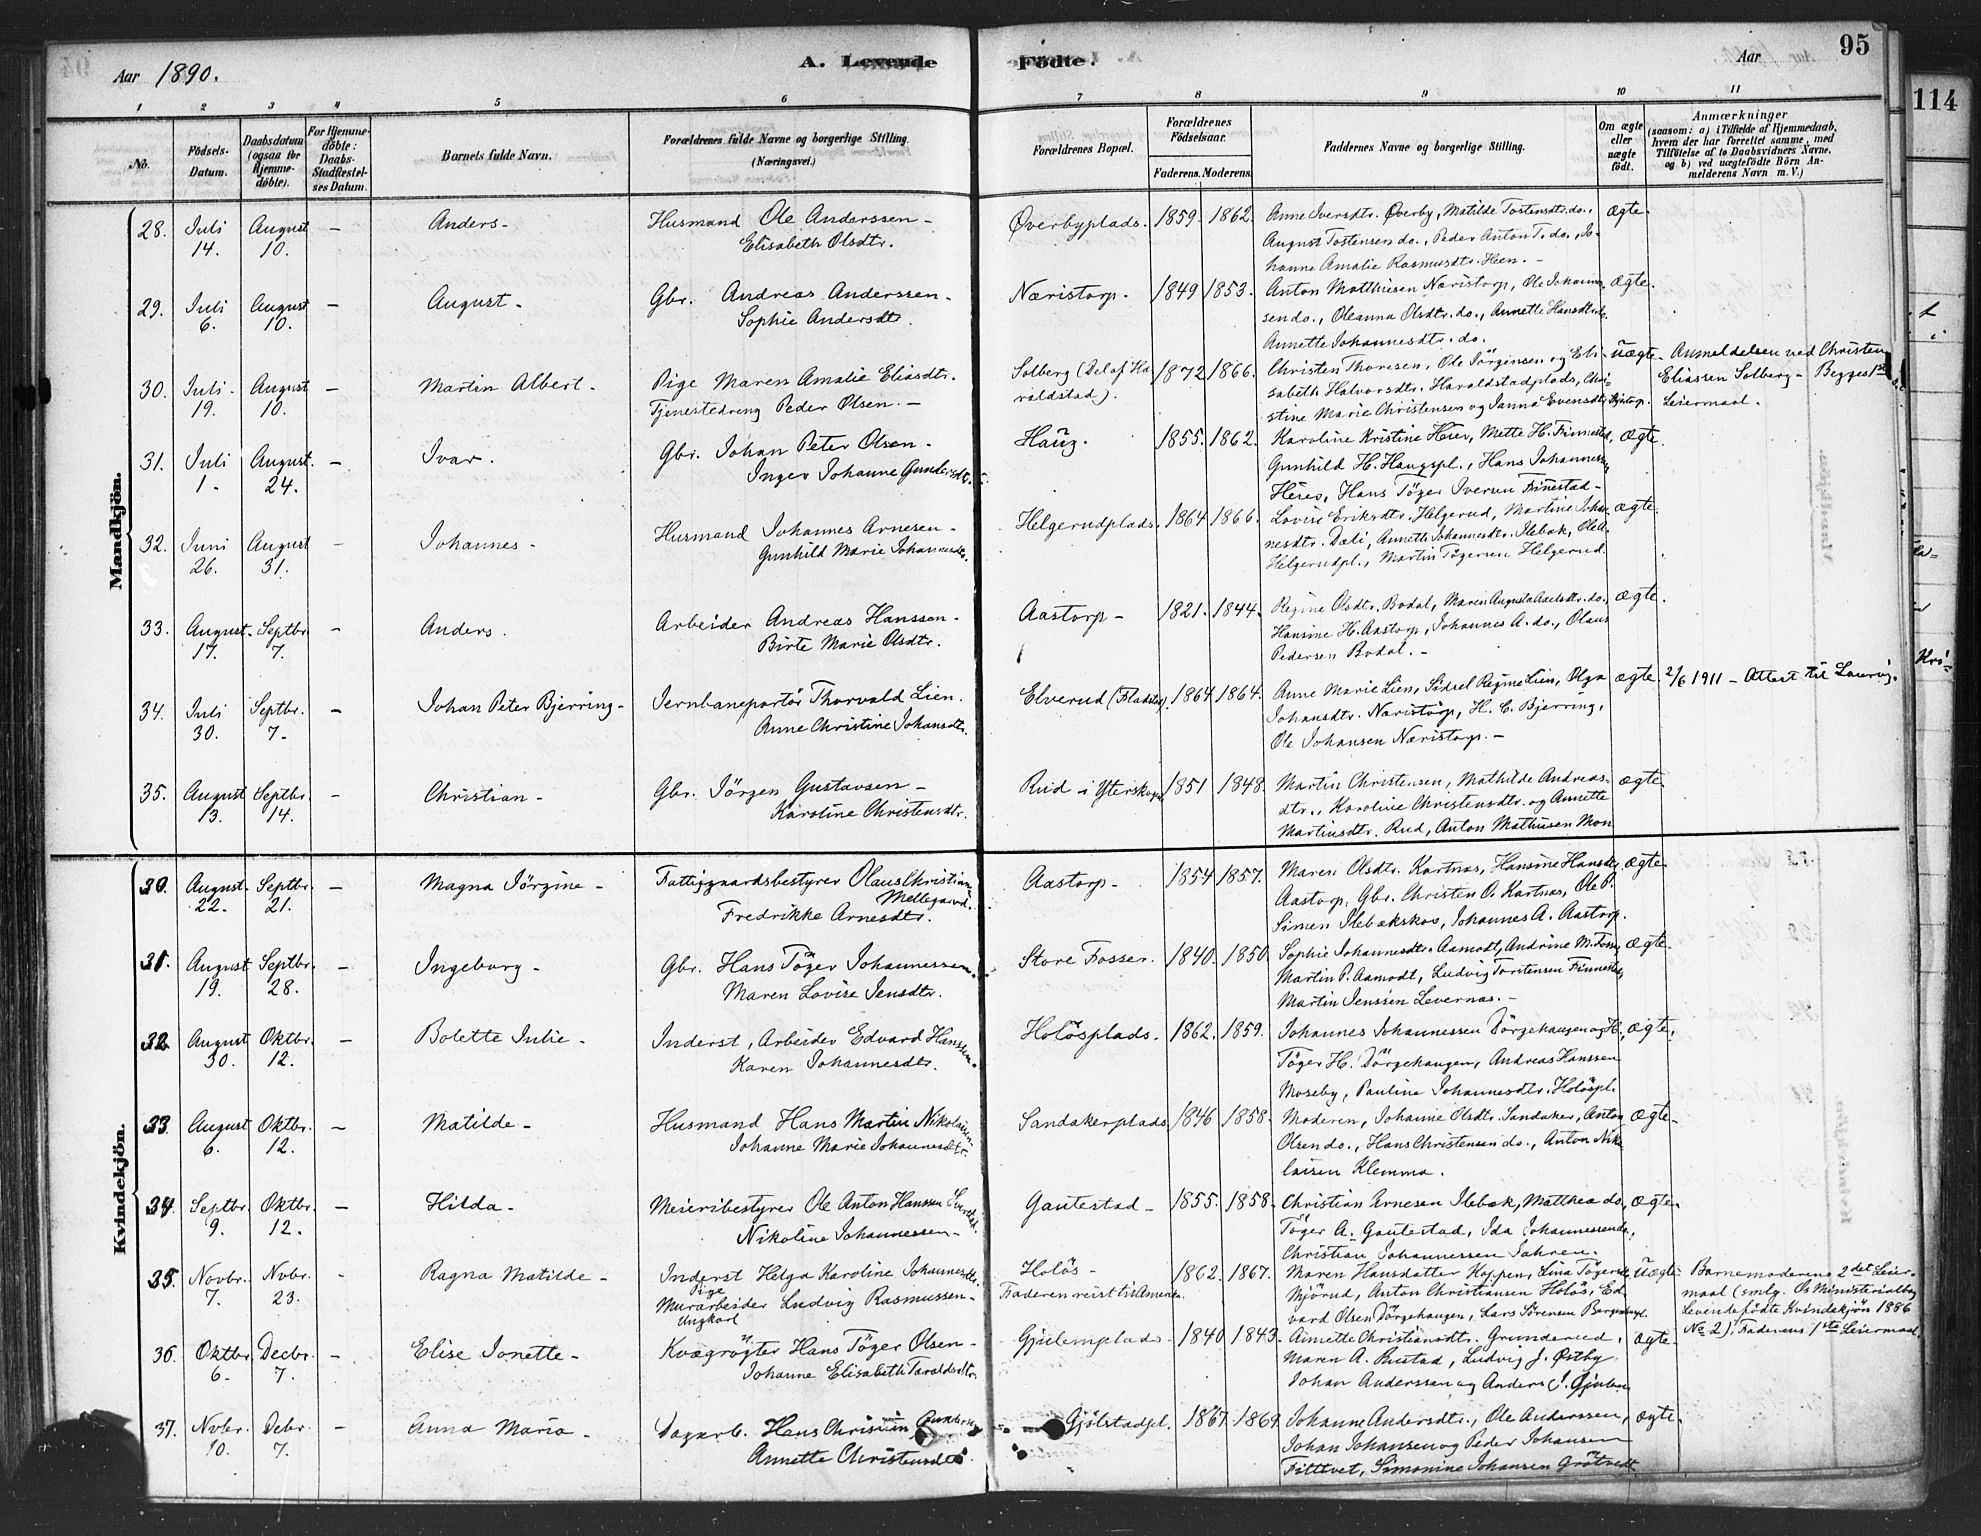 Aar 1890.
A. Levende
Födte.
Aar
95
114
1 2 3 4 5 6 7 8 9 10 11
No.
Födsels-
Datum.
Daabsdatum
(ogsaa for
Hjemme-
döbte).
For Hjemme-
döbte:
Daabs-
Stadfestel-
ses Datum.
Barnets fulde Navn.
Forældrenes fulde Navne og borgerlige Stilling.
(Næringsvei.)
Forældrenes Bopæl.
Forældrenes
Födselsaar.
Faderens. Moderens.
Faddernes Navne og borgerlige Stilling.
Om ægte
eller
uægte
födt.
Anmærkninger
(saasom: a) i Tilfælde af Hjemmedaab,
hvem der har forrettet samme, med
Tilföielse af to Daabsvidners Navne.
og b) ved uægtefödte Börn An-
melderens Navn m. V.)
Mandkjön.
28. Juli 14. August 10. – Anders – Husmand Ole Anderssen –
Elisabeth Olsdtr. Överbyplads. 1859. 1862. Anne Iversdtr. Överby, Matilde Tostensdtr. do.,
August Tostensen do., Peder Anton T. do., Jo-
hanne Amalie Rasmusdtr. Heen. – ægte.
29. Juli 6. August 10. – August – Gbr. Andreas Anderssen –
Sophie Andersdtr. Næristorp. 1849 1853. Anton Matthisen Næristorp, Ole Johannes-
sen do., Oleanna Olsdtr. do., Annette Hansdtr. do.
Annette Johannesdtr. do. ægte.
30. Juli 19. August 10. – Martin Albert – Pige Maren Amalie Eliasdtr.
Tjenestedreng Peder Olsen. – Solberg (Del af Ha-
raldstad). 1872 1866. Christen Thoresen, Ole Jörgensen og Eli-
sabeth Halvorsdtr. Haraldstadplads, Chri-
stine Marie Christensen og Janna Evensdtr. uægte Anmeldelsen ved Christen
Eliassen Solberg – Begges 1ste
Leiermaal.
31. Juli 1 – August 24. – Ivar. Gbr. Johan Peter Olsen –
Inger Johanne Gundersdtr. Haug. 1855. 1862. Karoline Kristine Heier, Mette H. Finnestad,
Gunhild H. Haugspl., Hans Johannessen
Heier, Hans Töger Iversen Finnestad – ægte.
32. Juni 26. August 31. – Johannes – Husmand Johannes Arnesen –
Gunhild Marie Johannesdtr. Helgerudplads. 1864 1866. Lovise Eriksdtr. Helgerud, Martine Johan-
nesdtr. Dæli, Annette Johannesdtr. Ilebæk, Ole A.
Helgerudpl., Martin Tögersen Helgerud. ægte.
33. August 17. Septbr. 7. – Anders. Arbeider Andreas Hanssen –
Birte Marie Olsdtr. Aastorp – 1821. 1844. Regine Olsdtr. Bodal, Maren Augusta Axelsdtr. do.,
Hansine H. Aastorp, Johannes A. do., Olaus
Pedersen Bodal. – ægte.
34. Juli 30. Septbr. 7 – – Johan Peter Bjerring – Jernbaneportör Thorvald Lien.
Anne Christine Johansdtr. Elverud (Fladstad). 1864. 1864. Anne Marie Lien, Sidsel Regine Lien, Olga
Johansdtr. Næristorp, H. C. Bjerring,
Ole Johansen Næristorp. – ægte. 2/6 1911 – Attest til Laurvig.
35. August 13. Septbr. 14. – Christian – Gbr. Jörgen Gustavsen –
Karoline Christensdtr. Rud i Yterskogen 1851 1848. Martin Christensen, Mathilde Andreas-
dtr., Karoline Christensdtr. og Annette
Martinsdtr. Rud, Anton Mathisen Mon ægte.
Kvindekjön.
30. August 22. Septbr. 21. – Magna Jörgine – Fattiggaardsbestyrer Olaus Christian
Mellegaard.
Fredrikke Arnesdtr. Aastorp – 1854 1857. Maren Olsdtr. Kartnæs, Hansine Hansdtr.
Aastorp, Gbr. Christen O. Kartnæs, Ole P.
Simen Ilebækskov, Johannes A. Aastorp. ægte
31. August 19. Septbr. 28. – Ingeborg – Gbr. Hans Töger Johannessen.
Maren Lovise Jensdtr. Store Fosser. 1840. 1850. Sophie Johannesdtr. Aamodt, Andrine M. Foss,
Martin P. Aamodt, Ludvig Torstensen Finnestad,
Martin Jenssen Levernæs. – ægte
32. August 30. Oktbr. 12. – Bolette Julie – Inderst, Arbeider Edvard Hanssen.
Karen Johannesdtr. Holösplads. 1862. 1859. Johannes Johannessen Dörgehaugen og H.
Töger H. Dörgehaugen, Andreas Hanssen
Moseby, Pauline Johannesdtr. Holöspl. ægte.
33. August 6. Oktbr. 12. – Matilde – Husmand Hans Martin Nikolaisen
Johanne Marie Johannesdtr. Sandakerplads 1846 1858. Moderen, Johanne Olsdtr. Sandaker, Anton
Olsen do., Hans Christensen do., Anton Niko-
laisen Klemma. ægte
34. Septbr. 9. Oktbr. 12. – Hilda – Meieribestyrer Ole Anton Hanssen
Nikoline Johannessen – Gautestad – 1855. 1858. Christian Arnesen Ilebæk, Matthea do.,
Töger A. Gautestad, Ida Johannessen do.,
Christian Johannessen Jahren. ægte
35. Novbr. 7. Novbr. 23. – Ragna Matilde – Inderst Pige Helga Karoline Johannesdtr.
Murarbeider Ungkarl Ludvig Rasmussen – Holös –
Faderen reist til Amerika. 1862. 1867. Maren Hansdatter Koppen, Lina Tögersdtr.
Mjörud, Anton Christiansen Holös, Ed-
vard Olsen Dörgehaugen, Lars Sörensen uægte Barnemoderens 2det Leier-
maal (smlg. Os Ministerialbog
Levendefödte Kvindekjön 1886
No 2); Faderens 1ste Leiermaal.
36. Oktbr. 6. Decbr. 7. – Elise Jonette – Kvægrögter Hans Töger Olsen –
Johanne Elisabeth Taraldsdtr. Gjulemplads 1840 1843. Annette Christiansdtr. Grunderud,
Maren A. Bustad, Ludvig J. Østby
Johan Anderssen og Anders J. Gjulem ægte
37. Novbr. 10. Debr. 7. – Anna Maria – Dagarb. Hans Christian
Annette Christensdtr. Gjölstadpl. 1867 1869. Johanne Andersdtr., Ole Anderssen,
Johan Johansen og Peder Johansen
Fittvet, Simonine Johansen Grötvedt ægte